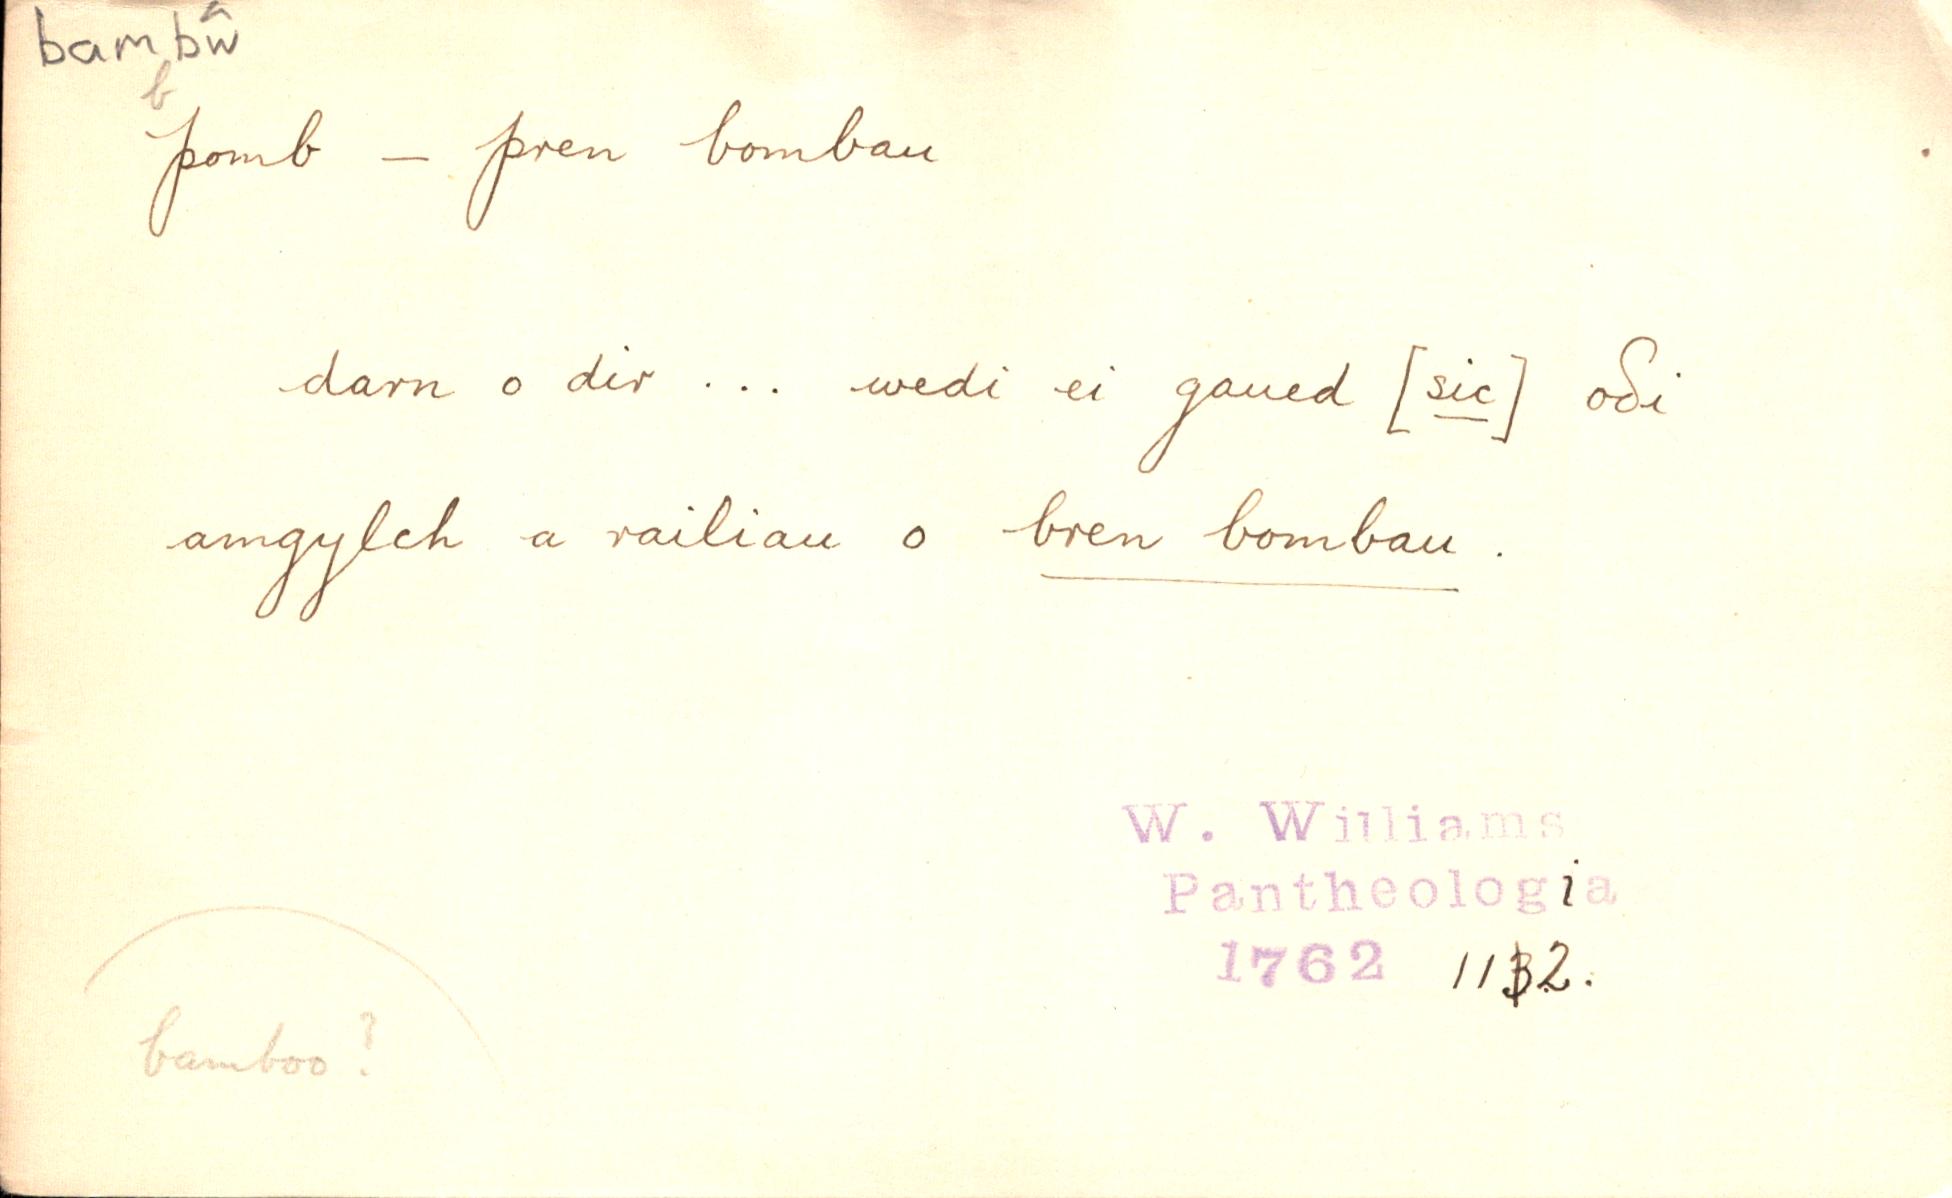 bambŵ
b
pomb — pren bombau
darn o dir ... wedi ei gaued [sic] oδi
amgylch a railiau o bren bombau.
W. Williams
Pantheologia
1762 112.
bamboo?